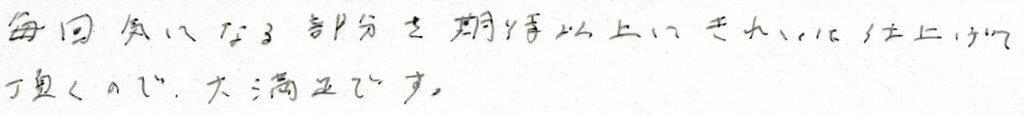 毎回気になる部分を期待以上にきれいに仕上げて
頂くので、大満足です。